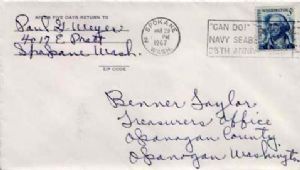 AFTER FIVE DAYS RETURN TO
Paul G. Meyer
4017 E Pratt
Spokane Wash.
ZIP CODE
SPOKANE
WASH.
PM
1967
"CAN DO!"
NAVY SEABEES
25TH ANNIV
WASHINGTON
Benner Taylor
Treasurers Office
Okanogan County
Okanogan Washington